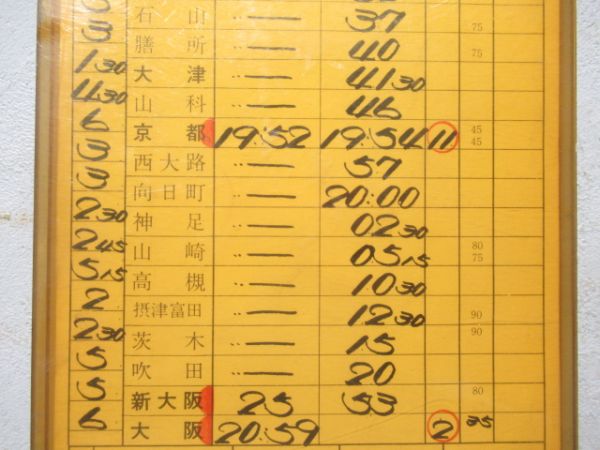 5 石山 37 75
3 膳所 ‥― 40 75
1 30 大津 ‥― 41 30
4 30 山科 ‥― 46
6 京都 19:52 19:54 11 45 45
3 西大路 ‥― 57
3 向日町 ‥― 20:00
2 30 神足 ‥― 02 30
2 45 山崎 ‥― 05 15 80 75
5 15 高槻 ‥― 10 30
2 摂津富田 ‥― 12 30 90
2 30 茨木 ‥― 15 90
5 吹田 ‥― 20
5 新大阪 25 53 80
6 大阪 20:59 2 35